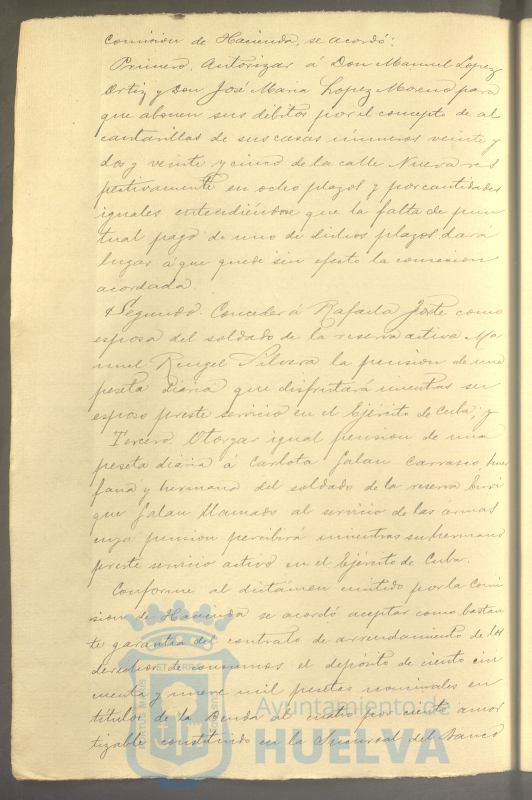 Comision de Hacienda, se acordó:
Primero. Autorizar á Don Manuel Lopez
Ortiz y Don José Maria Lopez Moreno para
que abonen sus débitos por el concepto de al
cantarillas de sus casas números veinte y
dos y veinte y cinco de la calle Nueva res
pectivamente en ocho plazos y por cantidades
iguales entendiéndose que la falta de pun
tual pago de uno de dichos plazos dará
lugar á que quede sin efecto la concesion
acordada.
Segundo. Conceder á Rafaela como
esposa del soldado de la reserva activa Ma
nuel Rengel Silvera la pension de una
peseta diaria que disfrutará mientras su
esposo preste servicio en el Ejército de Cuba; y
Tercero. Otorgar igual pension de una
peseta diaria á Carlota Galan Carrasco, huer
fana y hermana del soldado de la reserva Enri
que Galan llamado al servicio de las armas
cuya pension percibirá mientras su hermano
preste servicio activo en el Ejército de Cuba.
Conforme al dictámen emitido por la Comi
sion de Hacienda se acordó aceptar como bastan
te garantia del contrato de arrendamiento de los
derechos de consumos el depósito de ciento cin
cuenta y nueve mil pesetas nominales en
títulos de la Deuda al cuatro por ciento amor
tizable constituido en la Sucursal del Banco
Ayuntamiento de
HUELVA